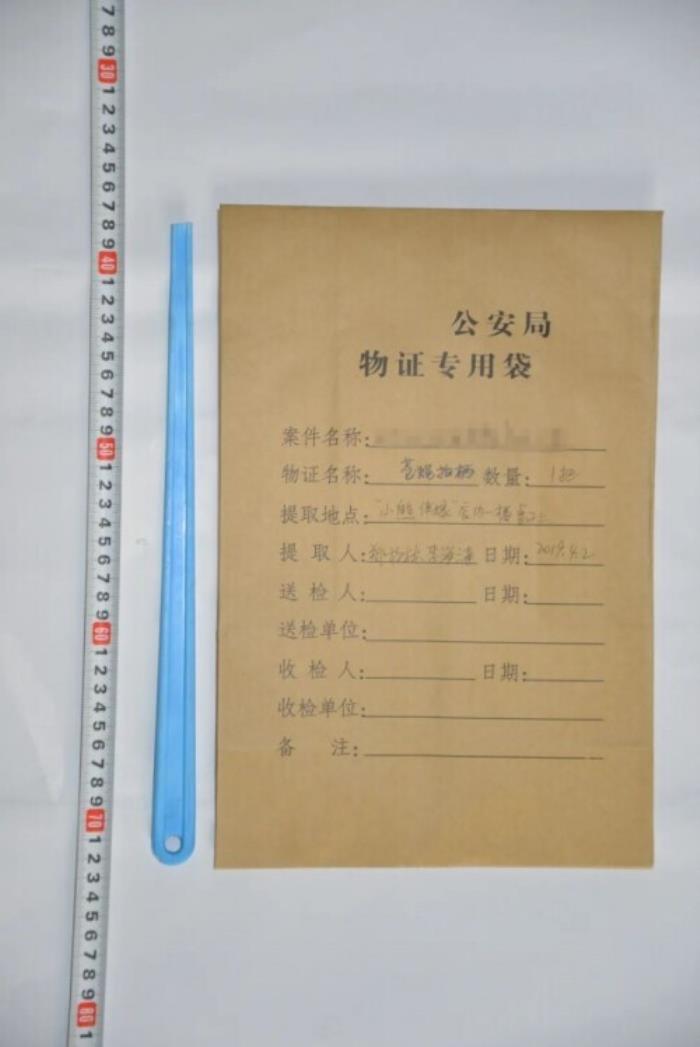 7 8 9 30 1 2 3 4 5 6 7 8 9 40 1 2 3 4 5 6 7 8 9 50 1 2 3 4 5 6 7 8 9 60 1 2 3 4 5 6 7 8 9 70 1 2 3 4 5 6 7 8 9 80 1
公安局
物证专用袋
案件名称:
物证名称: 苍蝇拍柄 数量: 1把
提取地点: "小熊
提取人: 日期: 2019.4.2
送检人: 日期:
送检单位:
收检人: 日期:
收检单位:
备 注: